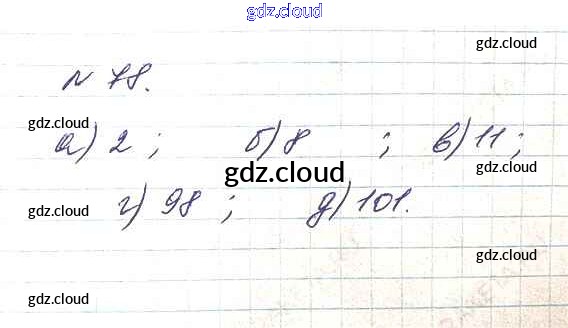 gdz.cloud
gdz.cloud
№ 78.
gdz.cloud gdz.cloud
а) 2 ; б) 8 ; в) 11 ;
gdz.cloud
г) 98 ; д) 101.
gdz.cloud
gdz.cloud
gdz.cloud